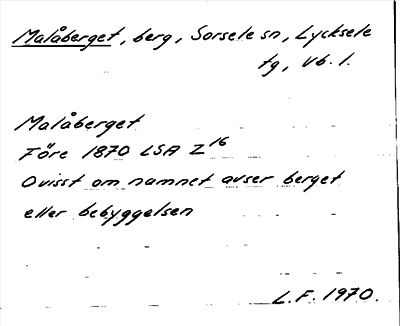 Malåberget, berg, Sorsele sn, Lycksele
tg, Vb. l.
Malåberget
Före 1870 LSA Z16
Ovisst om namnet avser berget
eller bebyggelsen
L.F. 1970.